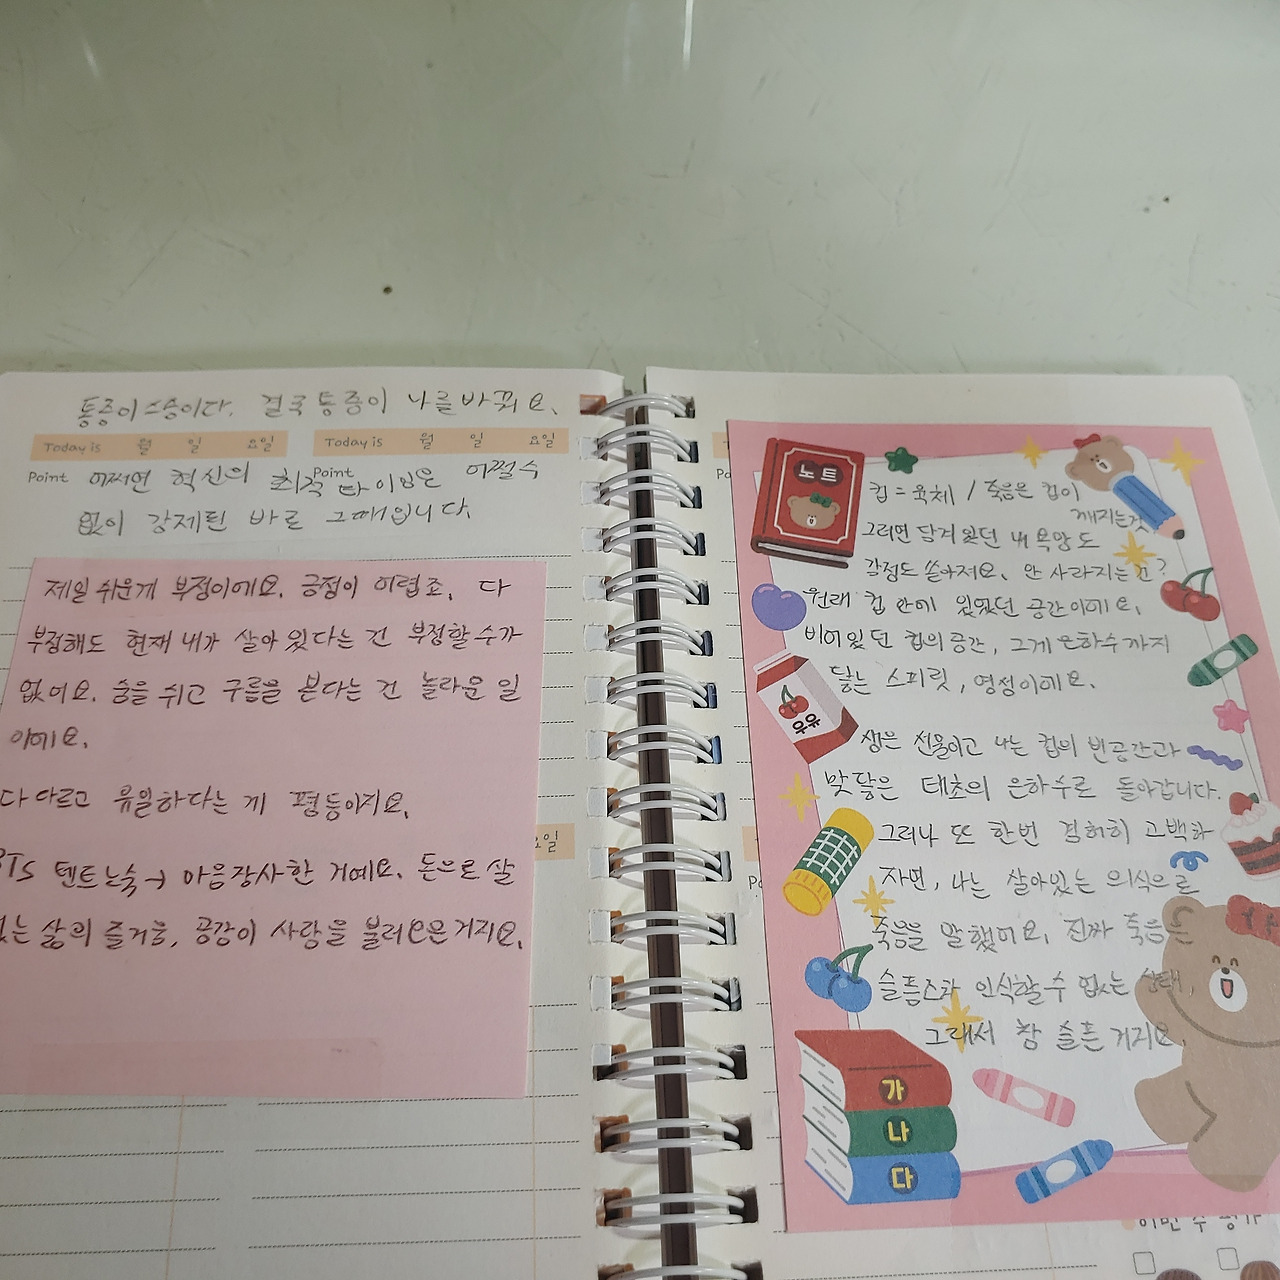 통증이 스승이다. 결국 통증이 나를 바꿔요.
Today is 월 일 요일 Today is 월 일 요일
Point 어쩌면 혁신의 최적 타이밍은 어쩔 수
Point
없이 강제된 바로 그때입니다.
제일 쉬운게 부정이에요. 긍정이 어렵죠. 다
부정해도 현재 내가 살아 있다는 건 부정할 수가
없어요. 숨을 쉬고 구름을 본다는 건 놀라운 일
이에요.
다 다르고 유일하다는 게 평등이지요.
BTS 텐트 노숙 → 마음장사한 거예요. 돈으로 살
없는 삶의 즐거움, 공감이 사랑을 불러온거지요.
요일
노트
컵 = 육체 / 죽음은 컵이
깨지는것
그러면 담겨 있던 내 욕망도
감정도 쏟아져요. 안 사라지는 건?
원래 컵 안에 있었던 공간이에요.
비어있던 컵의 공간, 그게 은하수까지
닿는 스피릿, 영성이에요.
우유
생은 선물이고 나는 컵의 빈공간과
맞닿은 태초의 은하수로 돌아갑니다.
그러나 또 한번 겸허히 고백하
자면, 나는 살아있는 의식으로
죽음을 말했어요. 진짜 죽음은
슬픔조차 인식할 수 없는 상태,
그래서 참 슬픈 거지요.
가
나
다